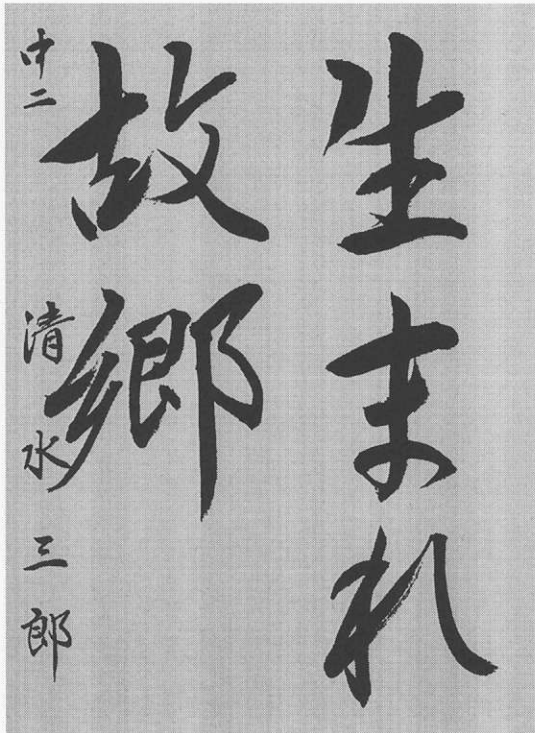 生まれ
故郷
中二 清水三郎